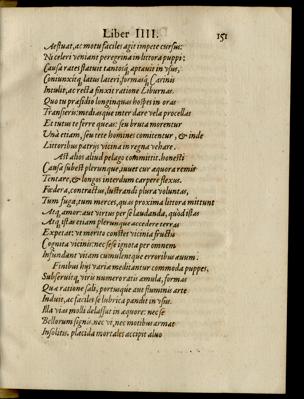 Liber IIII. 151
Aestuat, ac motu faciles agit impete cursus:
Ni celeri veniant peregrina in littora puppi:
Causa rates statuit tantosq́; aptauit in vsus,
Coniunxitq́; latus lateri, formasq́; Carinis
Intulit, ac recta finxit ratione Liburnas.
Quo tu præsidio longinquas hospes in oras
Transieris: mediasque inter dare vela procellas
Et tutus te ferre queas: seu bruta mouentur
Unà etiam, seu tete homines comitentur, & inde
Littoribus patrys vicina in regna vehare.
Ast alios aliud pelago committit. honesti
Causa subest plerunque, iuuet cur æquora remis
Tentare, & longos interdum carpere flexus.
Fœdera, contractus, lustrandi plura voluntas,
Tum fuga, tum merces, quas proxima littora mittunt
Atq́; amor: aut virtus per se laudanda, quòd istas
Atq́; istas etiam plerunque accedere terras
Expetat: vt merito constet vicinia fructu
Cognita vicinis: nec sese ignota per omnem
Infundant vitam cumulentque erroribus æuum.
Finibus hijs varia meditantur commoda puppes,
Subseruitq́; viris numero ratis æmula, formas
Qua ratione sali, portusque aut fluminis arte
Induit, ac faciles se lubrica pandit in vsus.
Illa vias molli delassat in æquore: nec se
Bellorum signis, nec vi, nec motibus armat
Insolitis, placida mortales accipit aluo